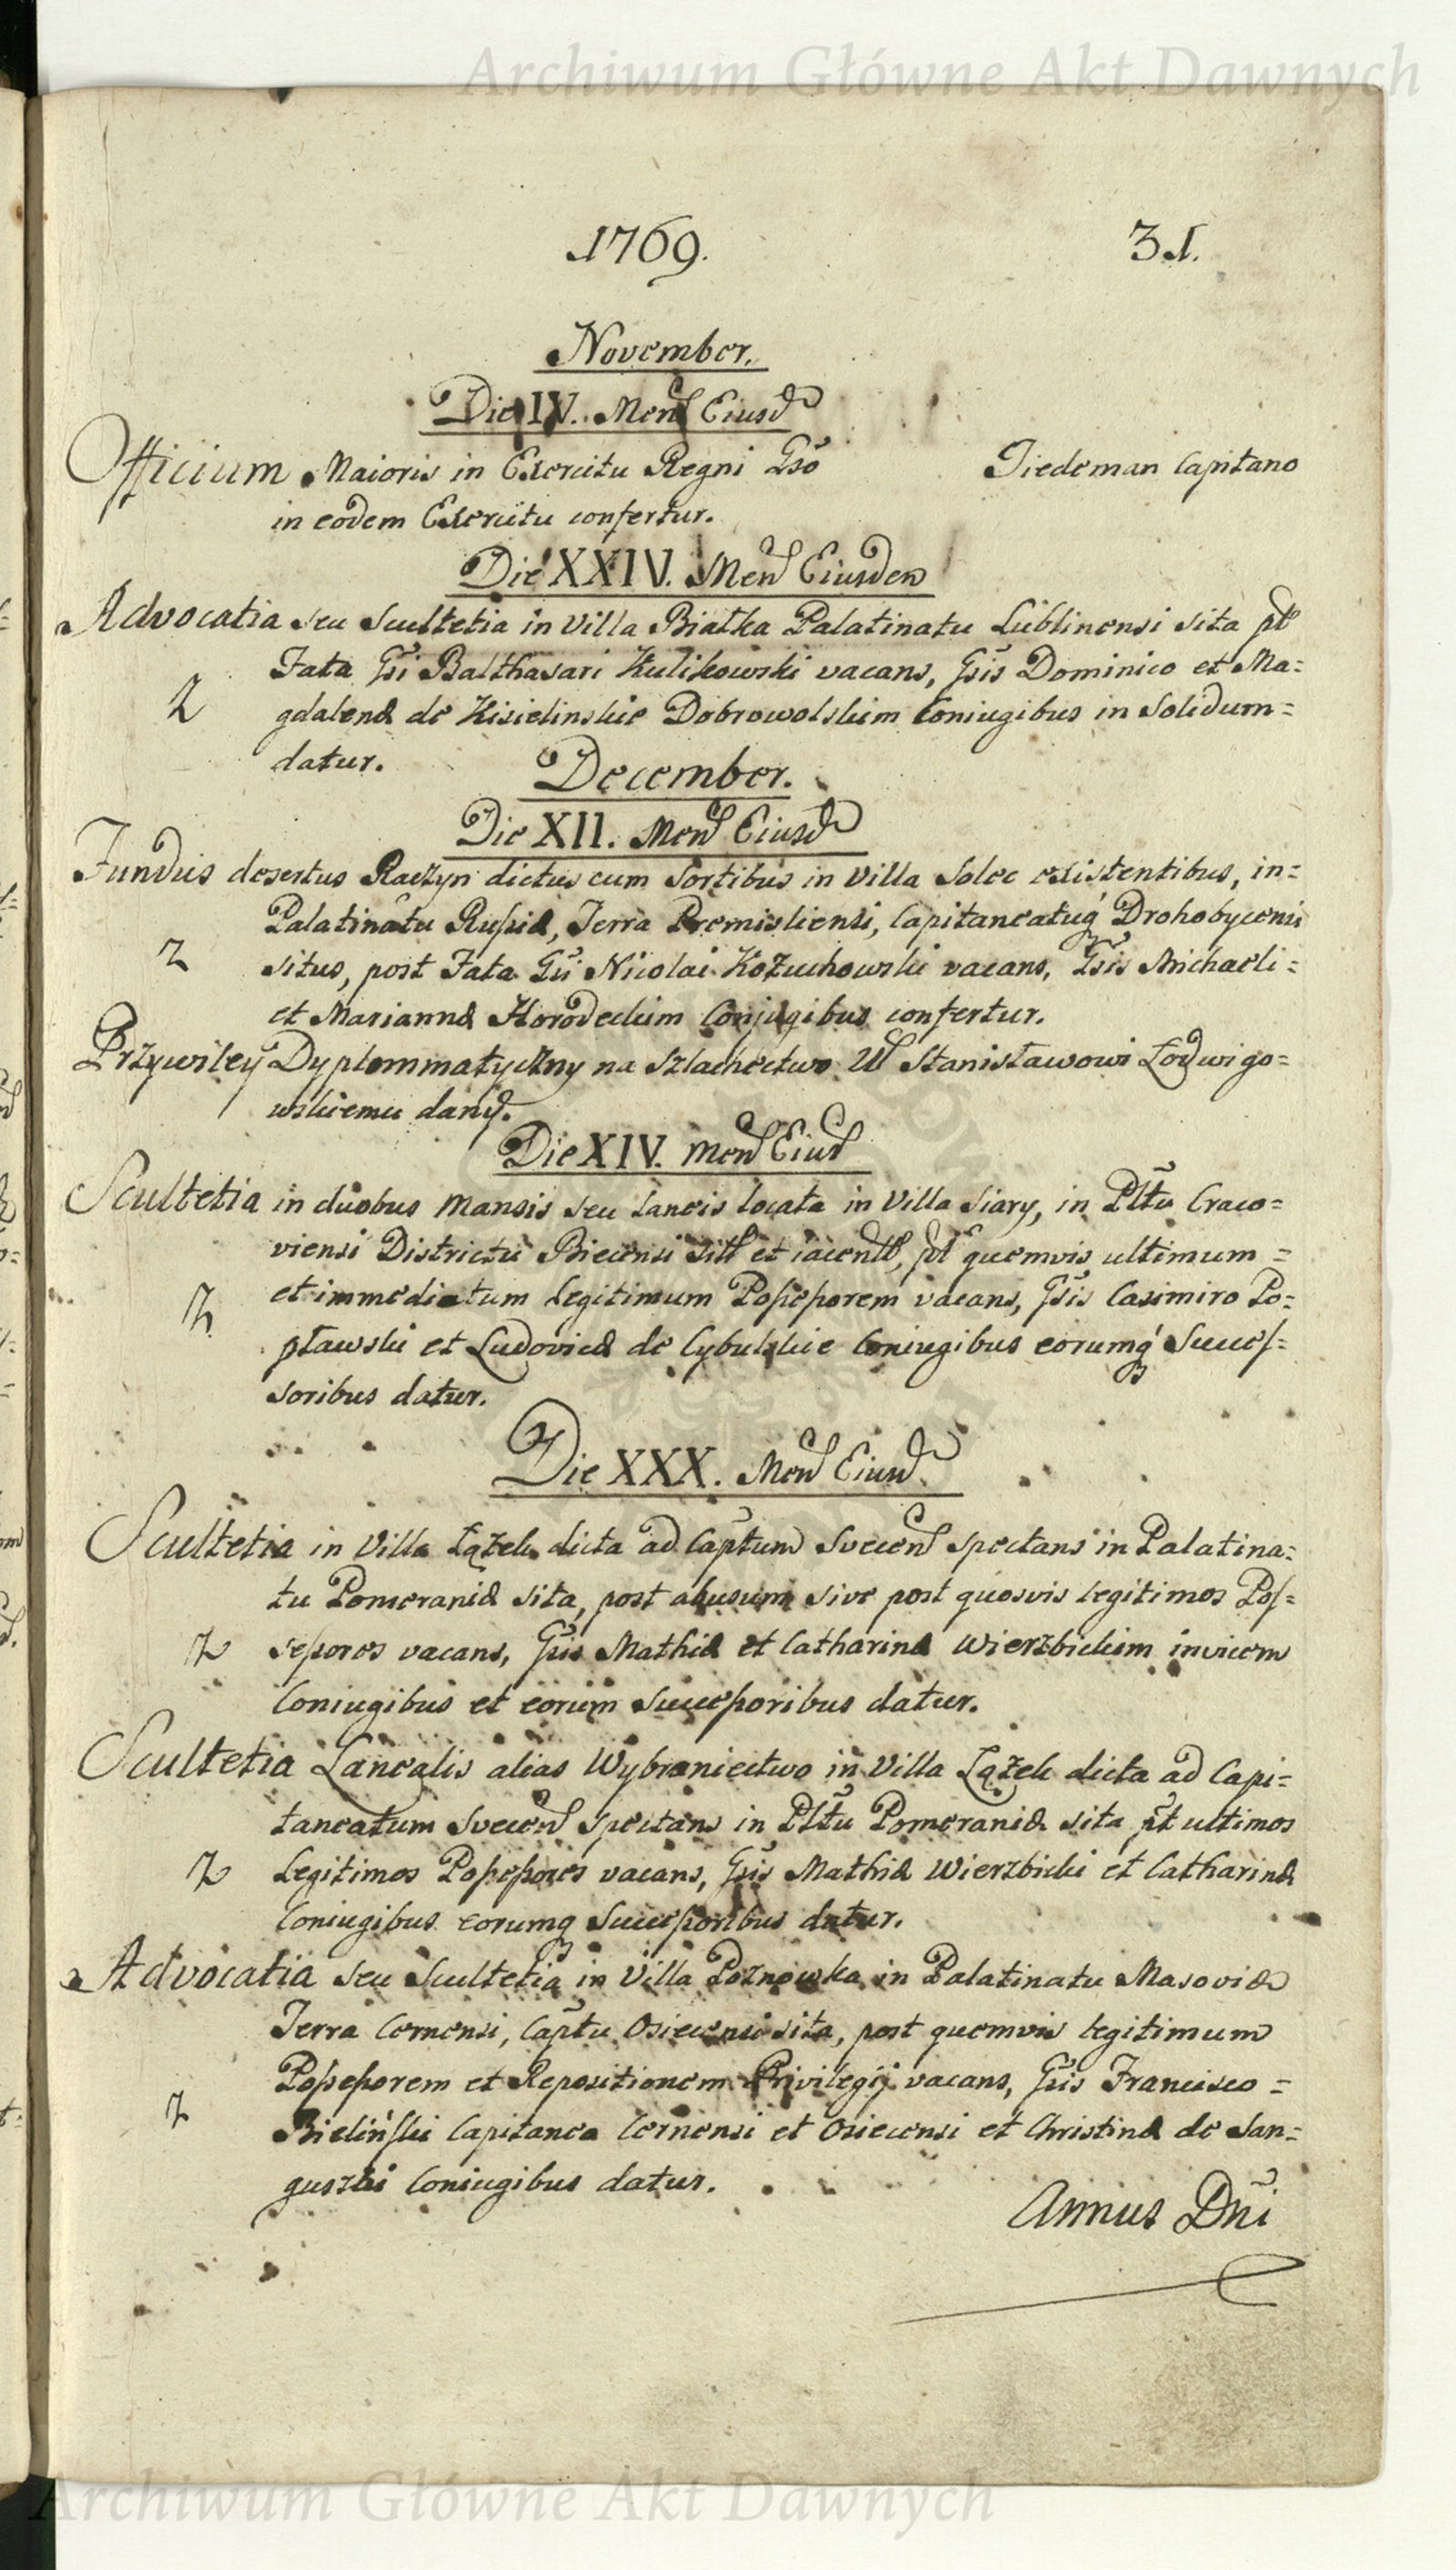 Archiwum Główne Akt Dawnych
1769. 31.
November.
Die IV. Mens Eiusd
Officium Maioris in Exercitu Regni Gso Tiedeman Capitano
in eodem Exercitu confertur.
Die XXIV. Mens Eiusdem
Advocatia seu Scultetia in Villa Białka Palatinatu Lublinensi sita pt
Fata Gsi Balthasari Kulikowski vacans, Gsis Dominico et Ma=
gdalenæ de Kisielinskie Dobrowolskim Coniugibus in Solidum=
datur.
December.
Die XII. Mens Eiusd
Fundus desertus Raczyn dictus cum Sortibus in Villa Solec existentibus, in=
Palatinatu Russiæ, Terra Premisliensi, Capitaneatuq Drohobycensi
situs, post Fata Gsi Nicolai Kożuchowski vacans, Gsis Michaeli=
et Mariannæ Horodeckim Conjugibus confertur.
Przywiley Dyplommatyczny na Szlachectwo Ur Stanisławowi Łodwigo=
wskiemu dany.
Die XIV. Mens Eiusd
Scultetia in duobus Mansis seu Laneis locata in Villa Siary, in Pltu Craco=
viensi Districtu Biecensi sitt et iacentt, pt quemvis ultimum=
et immediatum Legitimum Possessorem vacans, Gsis Casimiro Po=
pławski et Ludovicæ de Cybulskie Coniugibus eorumq Succes=
soribus datur.
Die XXX. Mens Eiusd
Scultetia in Villa Łążek dicta ad Captum Svecens spectans in Palatina=
tu Pomeraniæ sita, post abusum sive post quosvis legitimos Pos=
sessores vacans, Gsis Mathiæ et Catharinæ Wierzbickim invicem
Coniugibus et eorum Successoribus datur.
Scultetia Lanealis alias Wybraniectwo in Villa Łążek dicta ad Capi=
taneatum Svecens spectans in Pltu Pomeraniæ sita pt ultimos
Legitimos Possessores vacans, Gsis Mathiæ Wierzbicki et Catharinæ
Coniugibus eorumq Successoribus datur.
Advocatia seu Scultetia in Villa Poznowka in Palatinatu Masoviæ
Terra Cernensi, Captu Osiecensi sita, post quemvis legitimum
Possessorem et Repositionem Privilegij vacans, Gsis Francisco=
Bieliński Capitanea Cernensi et Osiecensi et Christinæ de San=
guszki Coniugibus datur.
Annus Dni
Archiwum Główne Akt Dawnych